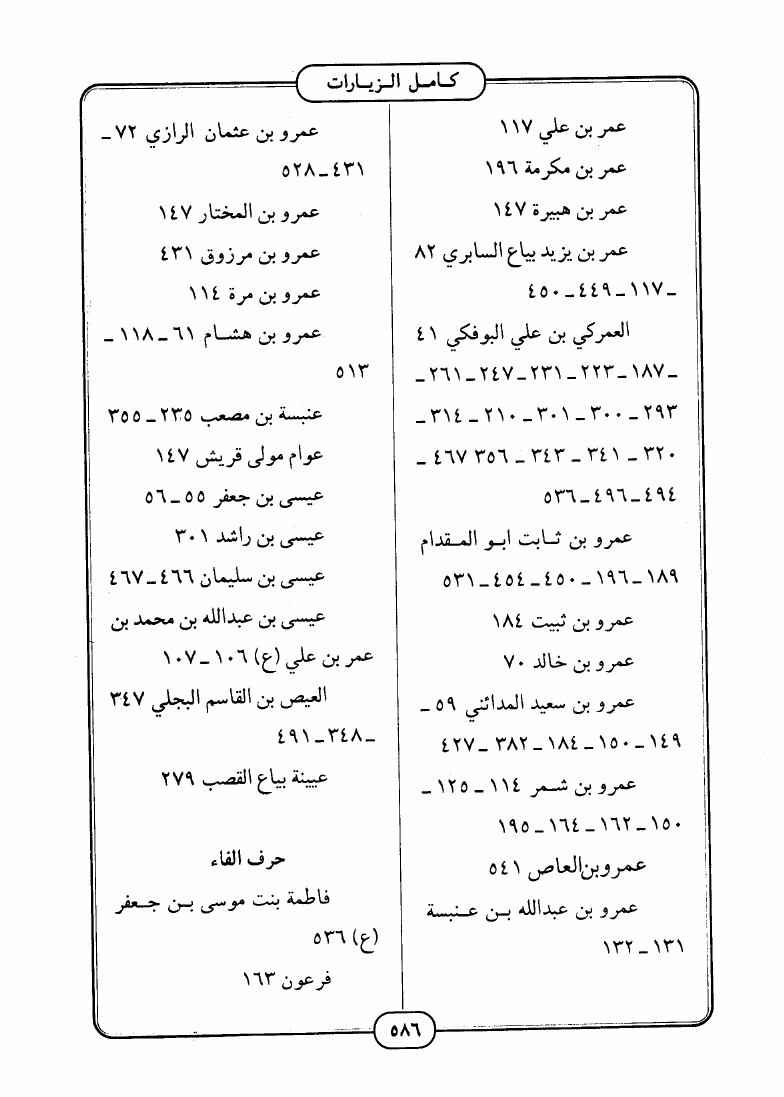 كامل الزيارات
عمر بن علي ١١٧
عمر بن مكرمة ١٩٦
عمر بن هبيرة ١٤٧
عمر بن يزيد بياع السابري ٨٢
_ ١١٧ _ ٤٤٩ _ ٤٥٠
العمركي بن علي البوفكي ٤١
_ ١٨٧ _ ٢٢٣ _ ٢٣١ _ ٢٤٧ _ ٢٦١ _
٢٩٣ _ ٣٠٠ _ ٣٠١ _ ٢١٠ _ ٣١٤ _
٣٢٠ _ ٣٤١ _ ٣٤٣ _ ٣٥٦ ٤٦٧ _
٤٩٤ _ ٤٩٦ _ ٥٣٦
عمرو بن ثابت ابو المقدام
١٨٩ _ ١٩٦ _ ٤٥٠ _ ٤٥٤ _ ٥٣١
عمرو بن ثبيت ١٨٤
عمرو بن خالد ٧٠
عمرو بن سعيد المدائني ٥٩ _
١٤٩ _ ١٥٠ _ ١٨٤ _ ٣٨٢ _ ٤٢٧
عمرو بن شمر ١١٤ _ ١٢٥ _
١٥٠ _ ١٦٢ _ ١٦٤ _ ١٩٥
عمرو بن العاص ٥٤١
عمرو بن عبدالله بن عنبسة
١٣١ _ ١٣٢
عمرو بن عثمان الرازي ٧٢ _
٤٣١ _ ٥٢٨
عمرو بن المختار ١٤٧
عمرو بن مرزوق ٤٣١
عمرو بن مرة ١١٤
عمرو بن هشام ٦١ _ ١١٨ _
٥١٣
عنبسة بن مصعب ٢٣٥ _ ٣٥٥
عوام مولى قريش ١٤٧
عيسى بن جعفر ٥٥ _ ٥٦
عيسى بن راشد ٣٠١
عيسى بن سليمان ٤٦٦ _ ٤٦٧
عيسى بن عبدالله بن محمد بن
عمر بن علي (ع) ١٠٦ _ ١٠٧
العيص بن القاسم البجلي ٣٤٧
_ ٣٤٨ _ ٤٩١
عيينة بياع القصب ٢٧٩
حرف الفاء
فاطمة بنت موسى بن جعفر
(ع) ٥٣٦
فرعون ١٦٣
٥٨٦